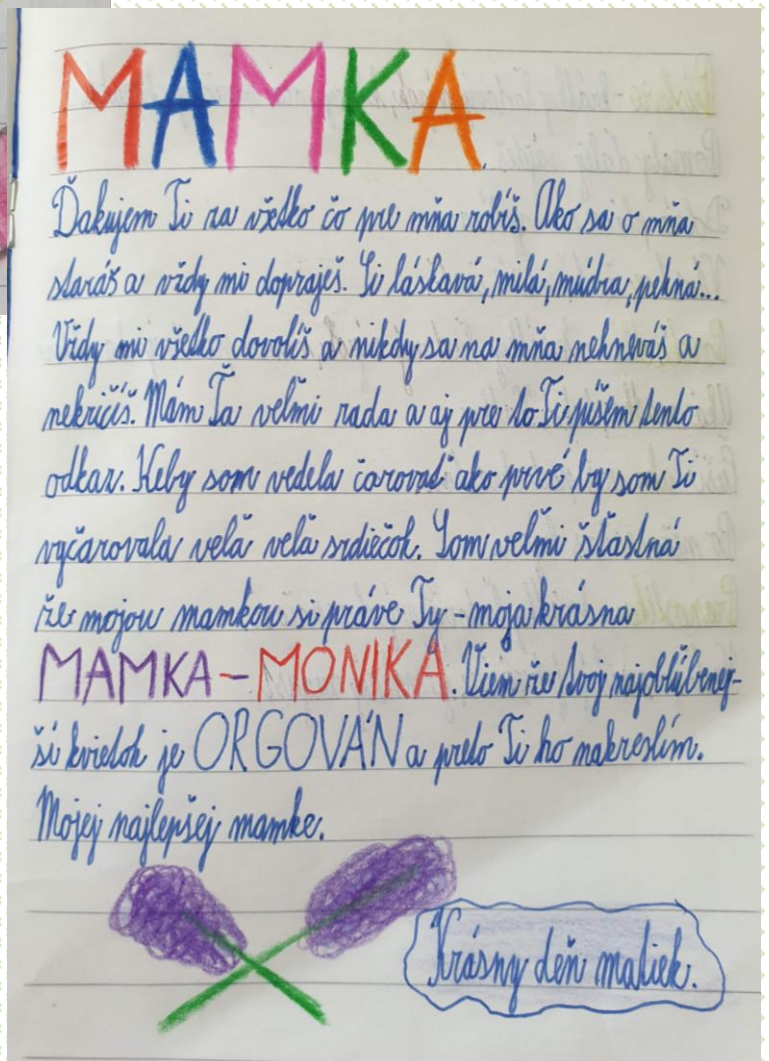 MAMKA
Ďakujem Ti za všetko čo pre mňa robíš. Ako sa o mňa
staráš a vždy mi dopraješ. Si láskavá, milá, múdra, pekná...
Vždy mi všetko dovolíš a nikdy sa na mňa nehneváš a
nekričíš. Mám Ťa veľmi rada a aj pre to Ti píšem tento
odkaz. Keby som vedela čarovať ako prvé by som Ti
vyčarovala veľa veľa srdiečok. Som veľmi šťastná
že mojou mamkou si práve Ty - moja krásna
MAMKA - MONIKA. Viem že tvoj najobľúbenej-
ší kvietok je ORGOVÁN a preto Ti ho nakreslím.
Mojej najlepšej mamke.
Krásny deň matiek.